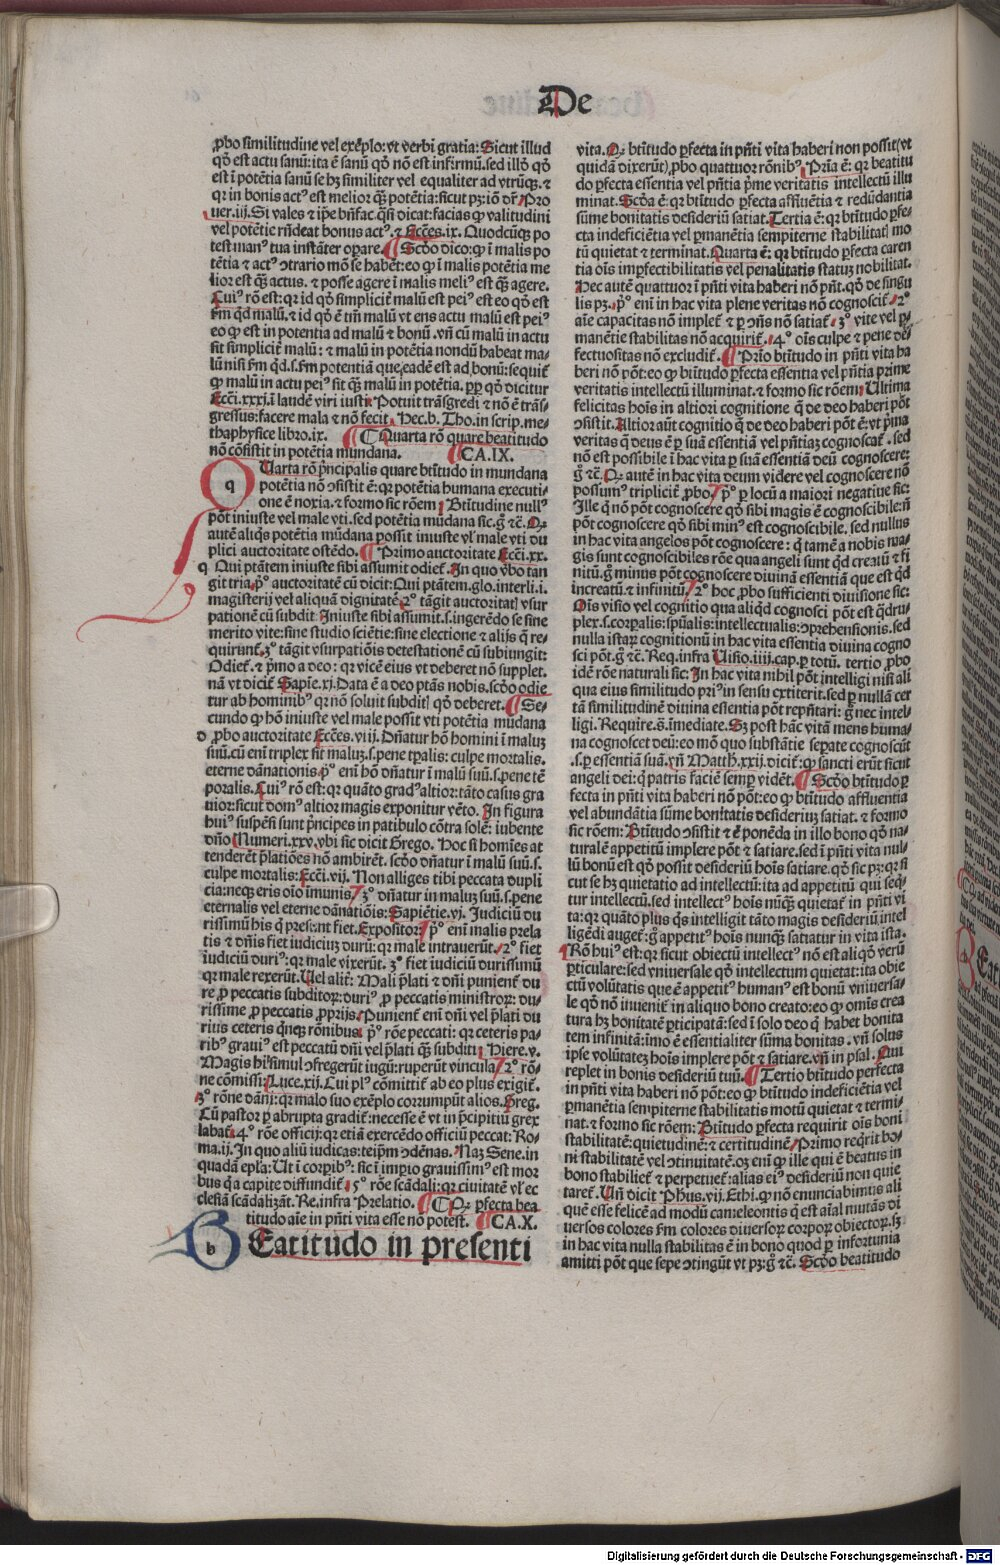 De
ꝓbo similitudine vel exẽplo: vt verbi gratia: Sicut illud
qđ est actu sanũ: ita ẽ sanũ qđ nõ est infirmũ. sed illđ qđ
est ĩ potẽtia sanũ se hꝫ similiter vel equaliter ad vtrũqꝫ. ⁊
qꝛ in bonis actꝰ est melior qꝫ̃ potẽtia: sicut pꝫ: iõ dr̃ Pro
uer. iij. Si vales ⁊ ip̃e bñfac. q̃si dicat: facias ꝙ valitudini
vel potẽtie rñdeat bonus actꝰ. ⁊ Eccẽs. ix. Quodcũqꝫ po
test manꝰ tua instãter oꝑare. Scđo dico: ꝙ ĩ malis po
tẽtia ⁊ actꝰ ↄtrario mõ se habẽt: eo ꝙ ĩ malis potẽtia me
lior est qꝫ̃ actus. ⁊ posse agere ĩ malis meliꝰ est qꝫ̃ agere.
Cuiꝰ rõ est: qꝛ id qđ simplicit̃ malũ est peiꝰ est eo qđ est
fm̃ qd malũ. ⁊ id qđ ẽ tm̃ malũ vt ens actu malũ est peiꝰ
eo ꝙ est in potentia ad malũ ⁊ bonũ. vñ cũ malũ in actu
sit simplicit̃ malũ: ⁊ malũ in potẽtia nondũ habeat ma
lũ nisi fm̃ qd. s. fm potentiã que eadẽ est ad bonũ: sequit̃
ꝙ malũ in actu peiꝰ sit qꝫ̃ malũ in potẽtia. ꝓꝑ qđ dicitur
Eccĩ. xxxi. ĩ laudẽ viri iusti: Potuit trãsgredi ⁊ nõ ẽ trãs-
gressus: facere mala ⁊ nõ fecit. Hec. b. Tho. in scrip. me-
thaphysice libro. ix. Quarta rõ quare beatitudo
nõ cõsistit in potẽtia mundana. CA. IX.
Uarta rõ p̃ncipalis quare btitudo in mundana
potẽtia nõ ↄsistit ẽ: qꝛ potẽtia humana executi-
one ẽ noxia. ⁊ formo sic rõem: Btitudine nullꝰ
põt iniuste vel male vti. sed potẽtia mũdana sic. g̃ ⁊c̃. Qꝛ
autẽ aliqꝫ potẽtia mũdana possit iniuste vl̃ male vti du
plici auctoritate ostẽdo. Primo auctoritate Eccĩ. xx.
Qui ptãtem iniuste sibi assumit odiet̃. In quo vbo tan
git tria. pꝰ auctoritatẽ cũ dicit: Qui ptãtem. glo. interli. i.
magisterij vel aliquã dignitatẽ. 2° tãgit auctoritatĩ vsur
pationẽ cũ subdit: Iniuste sibi assumit. s. ingerẽdo se sine
merito vite: sine studio sciẽtie: sine electione ⁊ alijs q̃ re-
quirunt̃. 3° tãgit vsurpatiõis detestationẽ cũ subiungit:
Odiet̃. ⁊ p̃mo a deo: qꝛ vicẽ eius vt deberet nõ supplet.
nã vt dicit̃ Sapiẽ. xj. Data ẽ a deo ptãs nobis. scđo odie
tur ab hominibꝰ qꝛ nõ soluit subditĩ qđ deberet. Se-
cundo ꝙ hõ iniuste vel male possit vti potẽtia mũdana
ꝓbo auctoritate Eccẽs. viij. Dñatur hõ homini ĩ maluꝫ
suũ. cũ eni triplex sit maluꝫ. s. pene tp̃alis: culpe mortalis.
eterne dãnationis. pꝰ eni hõ dñatur ĩ malũ suũ. s. pene tẽ
poralis. Cuiꝰ rõ est: qꝛ quãto gradꝰ altior: tãto casus gra
uior: sicut domꝰ altior magis exponitur vẽto. In figura
huiꝰ suspẽsi sunt p̃ncipes in patibulo cõtra solẽ: iubente
dño Numeri. xxv. vbi sic dicit Grego. Hoc si homĩes at
tenderẽt p̃latiões nõ ambirẽt. scđo dñatur ĩ malũ suũ. s.
culpe mortalis: Eccĩ. vij. Non alliges tibi peccata dupli
cia: neqꝫ eris oĩo ĩmunis. 3° dñatur in maluꝫ suũ. s. pene
eternalis vel eterne dãnatiõis: Sapiẽtie. vj. Judiciũ du
rissimũ his q̃ presunt fiet. Expositor: pꝰ eni malis prela
tis ⁊ dñis fiet iudiciuꝫ durũ: qꝛ male intrauerũt. 2° fiet
iudiciũ duriꝰ: qꝛ male vixerũt. 3° fiet iudiciũ durissimũ
qꝛ male rexerũt. Uel alit̃: Mali p̃lati ⁊ dñi punient̃ du
re ꝓ peccatis subditoꝝ: duriꝰ ꝓ peccatis ministroꝝ: du-
rissime ꝓ peccatis ꝓprijs. Punient̃ eni dñi vel p̃lati du
rius ceteris q̃nqꝫ rõnibus. pꝰ rõe peccati: qꝛ ceteris pa-
ribꝰ grauiꝰ est peccatũ dñi vel p̃lati qꝫ̃ subditi. Hiere. v.
Magis hĩ simul ↄfregerũt iugũ: ruperũt vincula. 2° rõ-
ne cõmissi: Luce. xij. Cui plꝰ cõmittit̃ ab eo plus exigit̃.
3° rõne dãni: qꝛ malo suo exẽplo corrumpũt alios. Greg.
Cũ pastor ꝑ abrupta gradit̃: necesse ẽ vt in p̃cipitiũ grex
labat̃. 4° rõe officij: qꝛ etiã exercẽdo officiũ peccat: Ro-
ma. ij. In quo aliũ iudicas: teip̃m ↄdẽnas. Naꝫ Sene. in
quadã epl̃a: Ut ĩ corp̃ibꝰ: sic ĩ imp̃io grauissimꝰ est mor
bus q̃ a capite diffundit̃. 5° rõe scãdali: qꝛ ciuitatẽ vl̃ ec
clesiã scãdalizãt. Re. infra Prelatio. Qꝛ ꝑfecta bea
titudo aĩe in p̃nti vita esse nõ potest. CA. X.
Eatitudo in presenti
vita. Qꝛ btĩtudo ꝑfecta in p̃nti vita haberi non possit (vt
quidã dixerũt) ꝓbo quattuor rõnibꝰ. Pria ẽ: qꝛ beatitu
do ꝑfecta essentia vel p̃ntia p̃me veritatis intellectũ illu
minat. Scđa ẽ: qꝛ btĩtudo ꝑfecta affluẽtia ⁊ redũdantia
sũme bonitatis desideriũ satiat. Tertia ẽ: qꝛ btĩtudo ꝑfe-
cta indeficiẽtia vel ꝑmanẽtia sempiterne stabilitatĩ mo
tũ quietat ⁊ terminat. Quarta ẽ: qꝛ btĩtudo ꝑfecta caren
tia oĩs imꝑfectibilitatis vel penalitatis statuꝫ nobilitat.
Hec autẽ quattuor ĩ p̃nti vita haberi nõ pñt. qđ de singu
lis pꝫ. pꝰ eni in hac vita plene veritas nõ cognoscit̃. 2°
aĩe capacitas nõ implet̃ ⁊ ꝑ ↄñs nõ satiat̃. 3° vite vel ꝑ-
manẽtie stabilitas nõ acquirit̃. 4° oĩs culpe ⁊ pene def
fectuositas nõ excludit̃. Prĩo btĩtudo in p̃nti vita ha
beri nõ põt: eo ꝙ btĩtudo ꝑfecta essentia vel p̃ntia prime
veritatis intellectũ illuminat. ⁊ formo sic rõem: Ultima
felicitas hoĩs in altiori cognitione q̃ de deo haberi põt
ↄsistit. Altior aũt cognitio q̃ de deo haberi põt ẽ: vt p̃ma
veritas q̃ deus ẽ ꝑ suã essentiã vel p̃ntiaꝫ cognoscat̃. sed
nõ est possibile ĩ hac vita ꝑ suã essentiã deũ cognoscere:
g̃ ⁊c̃. Qꝛ autẽ in hac vita deum videre vel cognoscere nõ
possumꝰ triplicit̃ ꝓbo. pꝰ ꝑ locũ a maiori negatiue sic:
Ille q̃ nõ põt cognoscere qđ sibi magis ẽ cognoscibile: ñ
põt cognoscere qđ sibi minꝰ est cognoscibile. sed nullus
in hac vita angelos põt cognoscere: q̃ tamẽ a nobis ma-
gis sunt cognoscibiles rõe qua angeli sunt qd creatũ ⁊ fi
nitũ. g̃ minus põt cognoscere diuinã essentiã que est qd
increatũ ⁊ infinitũ. 2° hoc ꝓbo sufficienti diuisione sic:
Oĩs visio vel cognitio qua aliqd cognosci põt est q̃dru-
plex. s. corꝑalis: spũalis: intellectualis: ↄprehensionis. sed
nulla istaꝝ cognitionũ in hac vita essentia diuina cogno
sci põt. g̃ ⁊c̃. Req. infra Uisio. iiij. cap. ꝑ totũ. tertio ꝓbo
idẽ rõe naturali sic: In hac vita nihil põt intelligi nisi ali
qua eius similitudo priꝰ in sensu extiterit. sed ꝑ nullã cer
tã similitudinẽ diuina essentia põt rep̃ntari: g̃ nec intel-
ligi. Require. s̃. imediate. Sꝫ post hãc vitã mens huma-
na cognoscet deũ: eo mõ quo substãtie seꝑate cognoscũt
. s. ꝑ essentiã suã. vñ Matth. xxij. dicit̃: ꝙ sancti erũt sicut
angeli dei: q̃ patris faciẽ semꝑ vidẽt. Scđo btĩtudo ꝑ
fecta in p̃nti vita haberi nõ põt: eo ꝙ btĩtudo affluentia
vel abundãtia sũme bonitatis desideriuꝫ satiat. ⁊ formo
sic rõem: Btĩtudo ↄsistit ⁊ ẽ ponẽda in illo bono qđ na-
turalẽ appetitũ implere põt ⁊ satiare. sed ĩ p̃nti vita nul
lũ bonũ est qđ possit desideriũ hoĩs satiare. qđ sic pꝫ: qꝛ si
cut se hꝫ quietatio ad intellectũ: ita ad appetitũ qui seq̃
tur intellectũ. sed intellectꝰ hoĩs nũqꝫ̃ quietat̃ in p̃nti vi
ta: qꝛ quãto plus q̃s intelligit tãto magis desideriũ intel
ligẽdi auget̃: g̃ appetitꝰ hoĩs nunqꝫ̃ satiatur in vita ista.
Rõ huiꝰ est: qꝛ sicut obiectũ intellectꝰ nõ est aliqđ verũ
ꝑticulare: sed vniuersale qđ intellectum quietat: ita obie
ctũ volũtatis que ẽ appetitꝰ humanꝰ est bonũ vniuersa-
le qđ nõ inuenit̃ in aliquo bono creato: eo ꝙ omĩs crea
tura hꝫ bonitatẽ ꝑticipatã: sed ĩ solo deo q̃ habet bonita
tem infinitã: ĩmo ẽ essentialiter sũma bonitas. vñ solus
ipse volũtateꝫ hoĩs implere põt ⁊ satiare. vñ in psal. Qui
replet in bonis desideriũ tuũ. Tertio btĩtudo perfecta
in p̃nti vita haberi nõ põt: eo ꝙ btĩtudo indeficiẽtia vel
ꝑmanẽtia sempiterne stabilitatis motũ quietat ⁊ termi-
nat. ⁊ formo sic rõem: Btĩtudo ꝑfecta requirit oĩs boni
stabilitatẽ: quietudinẽ: ⁊ certitudinẽ. Primo reqrit bo-
ni stabilitatẽ vel ↄtinuitatẽ. oꝫ eni ꝙ ille qui ẽ beatus in
bono stabiliet̃ ⁊ perpetuet̃: alias eiꝰ desideriũ non quie
taret̃. Uñ dicit Phus. vij. Ethi. ꝙ nõ enunciabimus ali
quẽ esse felicẽ ad modũ cameleontis q̃ est aĩal mutãs di
uersos colores fm colores diuersoꝝ corpoꝝ obiectoꝝ. sꝫ
in hac vita nulla stabilitas ẽ in bono quod ꝑ infortunia
amitti põt que sepe ↄtingũt vt pꝫ: g̃ ⁊c̃. Scđo beatitudo
Digitalisierung gefördert durch die Deutsche Forschungsgemeinschaft - DFG